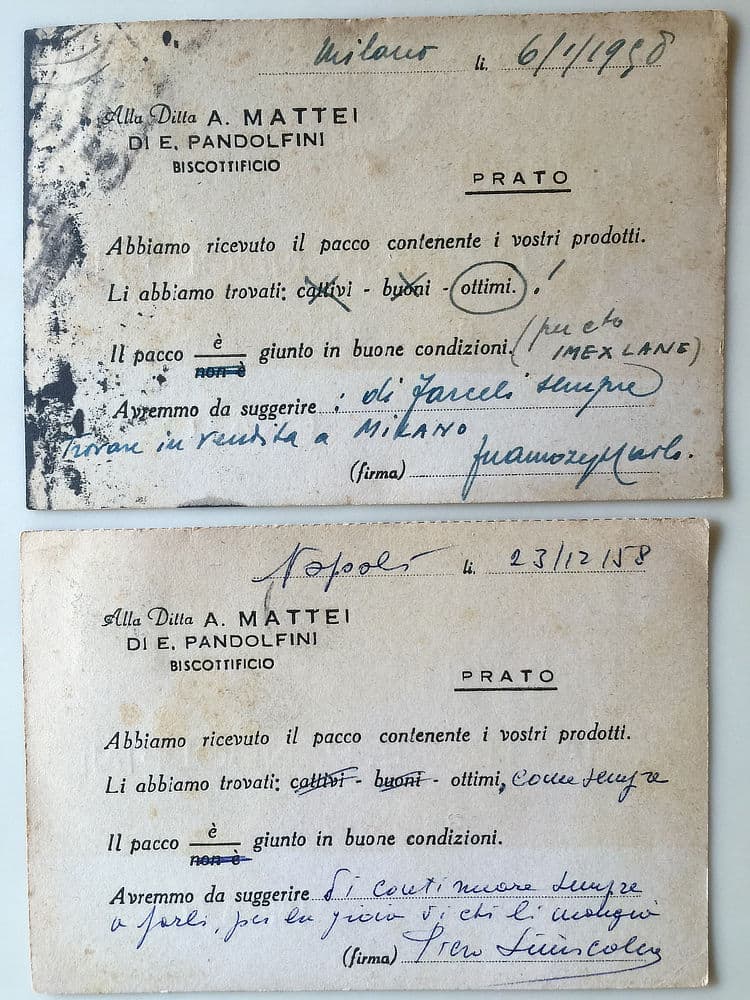 Milano li. 6/1/1958
Alla Ditta A. MATTEI
DI E. PANDOLFINI
BISCOTTIFICIO
PRATO
Abbiamo ricevuto il pacco contenente i vostri prodotti.
Li abbiamo trovati: cattivi - buoni - ottimi. !
Il pacco è giunto in buone condizioni. (per cto
non è IMEX LANE)
Avremmo da suggerire : di farceli sempre
trovare in vendita a MILANO
(firma)
Napoli li. 23/12/58
Alla Ditta A. MATTEI
DI E. PANDOLFINI
BISCOTTIFICIO
PRATO
Abbiamo ricevuto il pacco contenente i vostri prodotti.
Li abbiamo trovati: cattivi - buoni - ottimi, come sempre
Il pacco è giunto in buone condizioni.
non è
Avremmo da suggerire di continuare sempre
a farli, per la gioia di chi li mangia
(firma) Piero